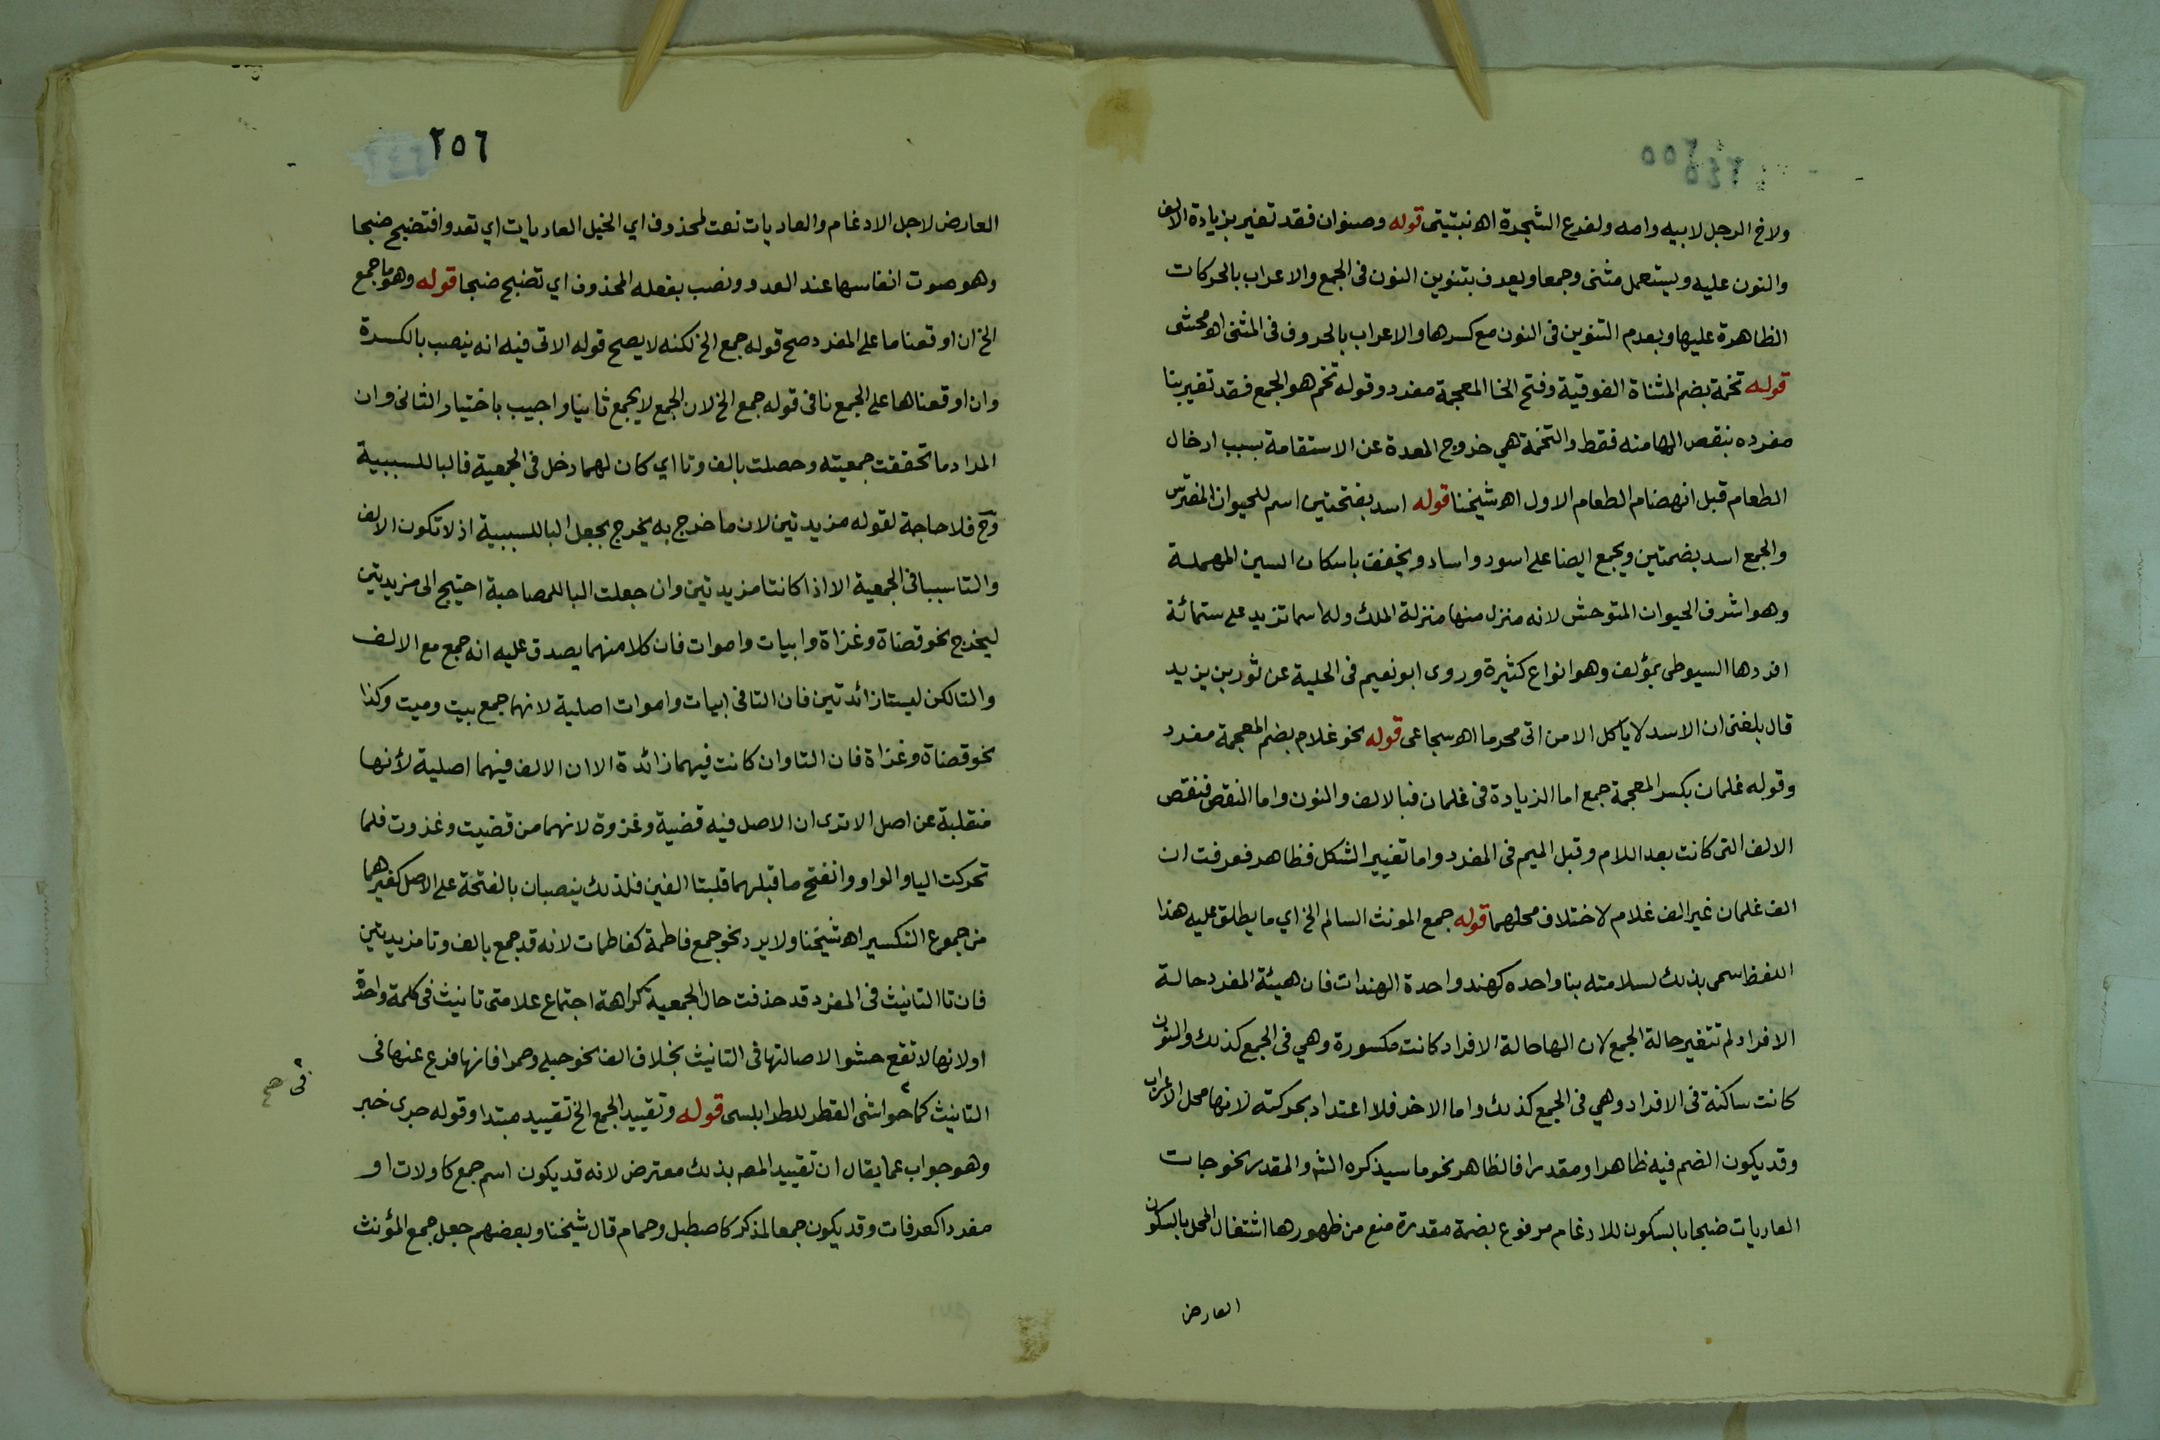 ولاخ الرجل لابيه وامه ولفرع الشجرة اه نبتيتى قوله وصنوان فقد تغير بزيادة الالف
والنون عليه ويستعمل مثنى وجمعا ويعرف بتنوين النون فى الجمع والاعراب بالحركات
الظاهرة عليها وبعدم التنوين فى النون مع كسرها والاعراب بالحروف فى المثنى اه محشى
قوله تخمة بضم المثناة الفوقية وفتح الخا المعجمة مفرد وقوله تخم هو الجمع فقد تغير بنا
مفرده بنقص الهامنه فقط والتخمة هي خروج المعدة عن الاستقامة بسبب ادخال
الطعام قبل انهضام الطعام الاول اه شيخنا قوله اسد بفتحتين اسم للحيوان المفترس
والجمع اسد بضمتين ويجمع ايضا على اسود واساد ويخفف باسكان السين المهملة
وهو اشرف الحيوان المتوحش لانه منزل منها منزلة الملك وله اسما تزيد على ستمائة
افردها السيوطى بمؤلف وهو انواع كثيرة وروى ابو نعيم فى الحلية عن ثور بن يزيد
قال بلغنى ان الاسد لا ياكل الا من اتى محرما اه سجاعى قوله نحو غلام بضم المعجمة مفرد
وقوله غلمان بكسر المعجمة جمع اما الزيادة فى غلمان فبالالف والنون واما النقص فنقص
الالف التى كانت بعد اللام وقبل الميم فى المفرد واما تغيير الشكل فظاهر فعرفت ان
الف غلمان غير الف غلام لاختلاف محلهما قوله جمع المونث السالم الخ اي ما يطلق عليه هذا
اللفظ سمى بذلك لسلامته بنا واحده كهند واحدة الهندات فان هيئة المفرد حالة
الافراد لم تتغير حالة الجمع لان الها حالة الافراد كانت مكسورة وهي فى الجمع كذلك والنون
كانت ساكنة فى الافراد وهي فى الجمع كذلك واما الاخر فلا اعتداد بحركته لانها محل الاعراب
وقد يكون الضم فيه ظاهرا ومقدرا فالظاهر نحو ما سيذكره الش والمقدر نحو جات
العاديات ضبحا بالسكون للادغام مرفوع بضمة مقدرة منع من ظهورها اشتغال المحل بالسكون
العارض
٢٥٦
العارض لاجل الادغام والعاديات نعت لمحذوف اي الخيل العاديات اي تعدوا فتضبح ضبحا
وهو صوت انفاسها عند العدو ونصب بفعله المحذوف اي تضبح ضبحا قوله وهو ما جمع
الخ ان اوقعنا ما على المفرد صح قوله جمع الخ لكنه لا يصح قوله الاتى فيه انه ينصب بالكسرة
وان اوقعناها على الجمع نافى قوله جمع الخ لان الجمع لا يجمع ثانيا واجيب باختيار الثانى وان
المراد ما تحققت جمعيته وحصلت بالف وتا اي كان لهما دخل فى الجمعية فالبا للسببية
وح فلا حاجة لقوله مزيدتين لان ما خرج به يخرج بجعل البا للسببية اذ لا تكون الالف
والتا سببا فى الجمعية الا اذا كانتا مزيدتين وان جعلت البا للمصاحبة احتيج الى مزيدتين
ليخرج نحو قضاة وغزاة وابيات واموات فان كلا منهما يصدق عليه انه جمع مع الالف
والتا لكن ليستا زائدتين فان التا فى ابيات واموات اصلية لانهما جمع بيت وميت وكذا
نحو قضاة وغزاة فان التا وان كانت فيهما زائدة الا ان الالف فيهما اصلية لأنها
منقلبة عن اصل الا ترى ان الاصل فيه قضية وغزوة لانهما من قضيت وغزوت فلما
تحركت اليا والواو وانفتح ما قبلهما قلبتا الفين فلذلك ينصبان بالفتحة على الاصل كغيرهما
من جموع التكسير اه شيخنا ولا يرد نحو جمع فاطمة كفاطمات لانه قد جمع بالف وتا مزيدتين
فان تا التانيث فى المفرد قد حذفت حال الجمعية كراهة اجتماع علامتى تانيث فى كلمة واحدة
او لانها لا تقع حشوا لاصالتها فى التانيث بخلاف الف نحو حبلى وحمرا فانها فرع عنها فى
التانيث كما حواشى القطر للطرابلسى قوله وتقييد الجمع الخ تقييد مبتدا وقوله جرى خبر
فى صح
وهو جواب عما يقال ان تقييد المص بذلك معترض لانه قد يكون اسم جمع كاولات او
مفردا كعرفات وقد يكون جمعا لمذكر كاصطبل وحمام قال شيخنا وبعضهم جعل جمع المؤنث